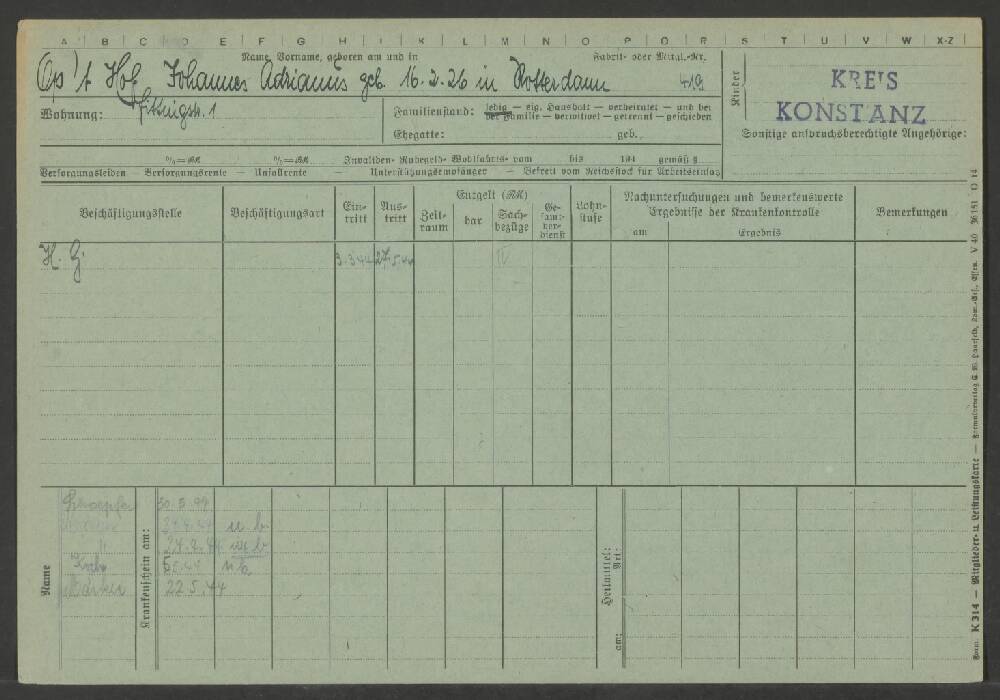 A B C D E F G H I K L M N O P Q R S T U V W X-Z
Name, Vorname, geboren am und in Fabrik- oder Mitgl.-Nr.
Op 't Hof, Johannes Adrianus geb. 16.2.26 in Rotterdam 419
Kinder
KREIS
KONSTANZ
Wohnung: 1
Familienstand: ledig — eig. Haushalt — verheiratet — und bei
der Familie — verwitwet — getrennt — geschieden
Ehegatte: geb.
Sonstige anspruchsberechtigte Angehörige:
%=RM %=RM Invaliden- Ruhegeld- Wohlfahrts- vom bis 194 gemäß §
Versorgungsleiden — Versorgungsrente — Unfallrente — Unterstützungsempfänger — Befreit vom Reichsstock für Arbeitseinsatz
Beschäftigungsstelle Beschäftigungsart Ein-tritt Aus-tritt Entgelt (RM) Zeit-raum bar Sach-bezüge Ge-samt-ver-dienst Lohn-stufe
Nachuntersuchungen und bemerkenswerte
Ergebnisse der Krankenkontrolle
am Ergebnis
Bemerkungen
H. G. 3.3.44 27.5.44 IV
Name
Krankenschein am:
30.3.44
u b
"
Marker 22.5.44
Heilmittel:
Art:
am:
Form. K 314 — Mitglieder- u. Leistungskarte —